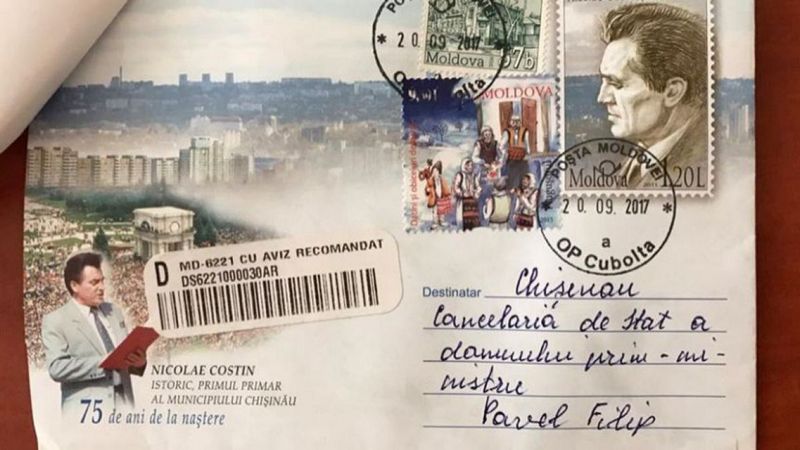 POȘTA MOLDOVEI
* 20.09.2017 *
OP Cubolta
Moldova
MOLDOVA
Datini și obiceiuri
Moldova 2011 1,20L
POȘTA MOLDOVEI
* 20.09.2017 *
a
OP Cubolta
D
MD-6221 CU AVIZ RECOMANDAT
DS6221000030AR
Destinatar Chișenau
Cancelariă de stat a
domnului prim-mi-
nistru
Pavel Filip
NICOLAE COSTIN
ISTORIC, PRIMUL PRIMAR
AL MUNICIPIULUI CHIȘINĂU
75 de ani de la naștere